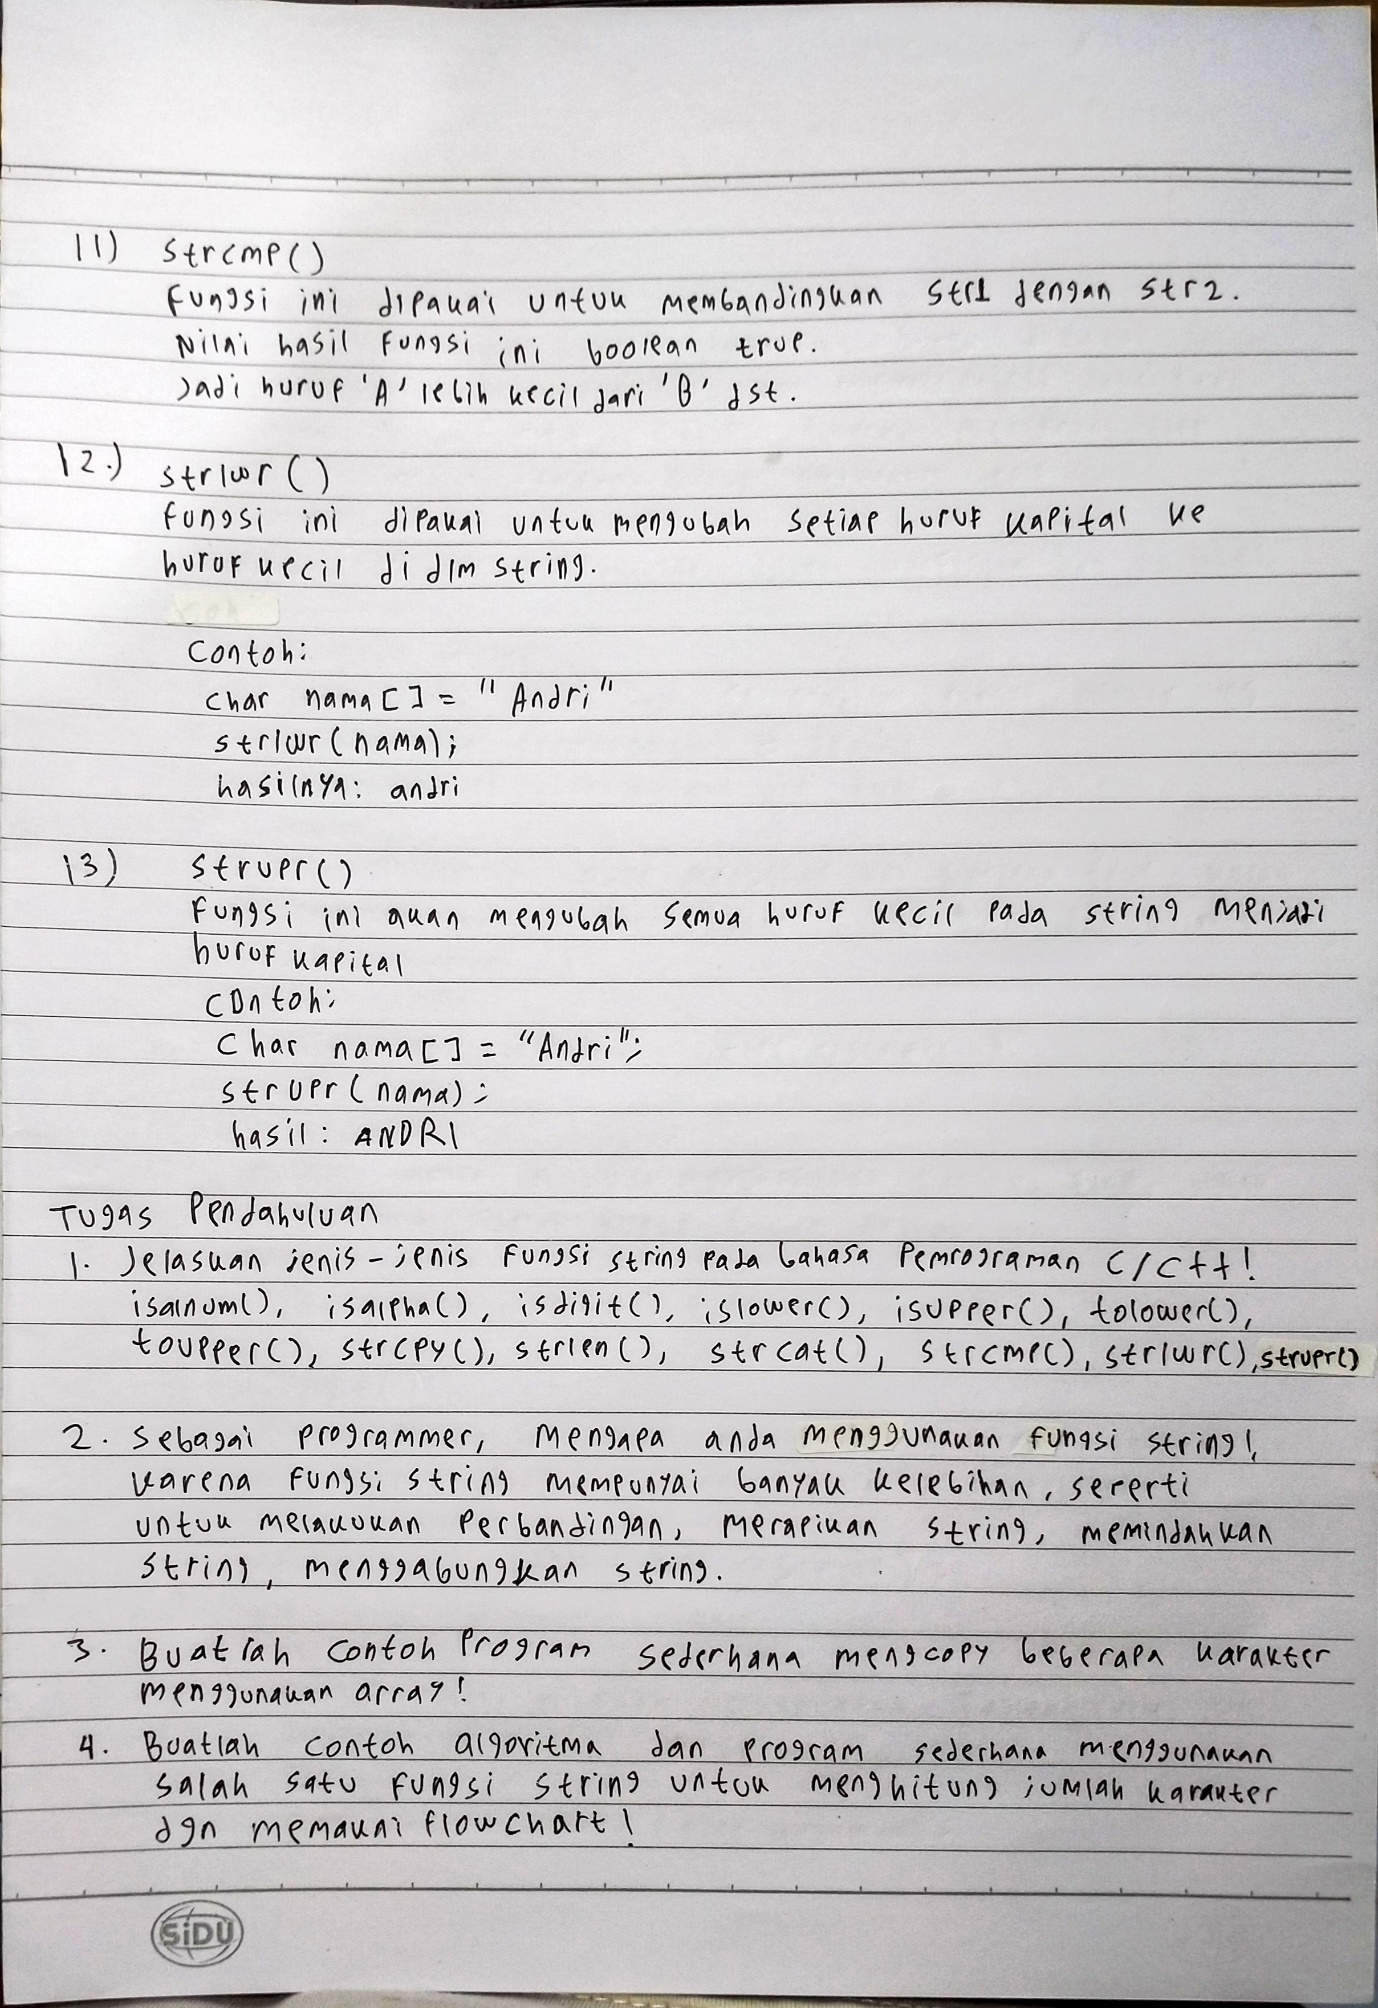 11) strcmp()
Fungsi ini dipakai untuk membandingkan str1 dengan str2.
Nilai hasil fungsi ini boolean true.
Jadi huruf 'A' lebih kecil dari 'B' dst.
12.) strlwr()
fungsi ini dipakai untuk mengubah setiap huruf kapital ke
huruf kecil di dlm string.
Contoh:
char nama[] = "Andri"
strlwr(nama);
hasilnya: andri
13) strupr()
Fungsi ini akan mengubah semua huruf kecil pada string menjadi
huruf kapital
Contoh:
Char nama[] = "Andri";
strupr(nama);
hasil: ANDRI
Tugas Pendahuluan
1. Jelaskan jenis-jenis fungsi string pada bahasa Pemrograman C/C++!
isalnum(), isalpha(), isdigit(), islower(), isupper(), tolower(),
toupper(), strcpy(), strlen(), strcat(), strcmp(), strlwr(), strupr()
2. Sebagai programmer, mengapa anda menggunakan fungsi string!
Karena fungsi string mempunyai banyak kelebihan, sererti
untuk melakukan Perbandingan, merapikan string, memindahkan
string, menggabungkan string.
3. Buatlah contoh Program sederhana mengcopy beberapa karakter
menggunakan array!
4. Buatlah contoh algoritma dan program sederhana menggunakan
salah satu fungsi string untuk menghitung jumlah karakter
dgn memakai flowchart!
SiDU